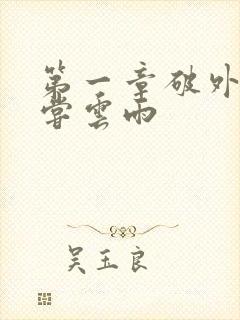 第一章破外
嘗雲雨
吴玉良